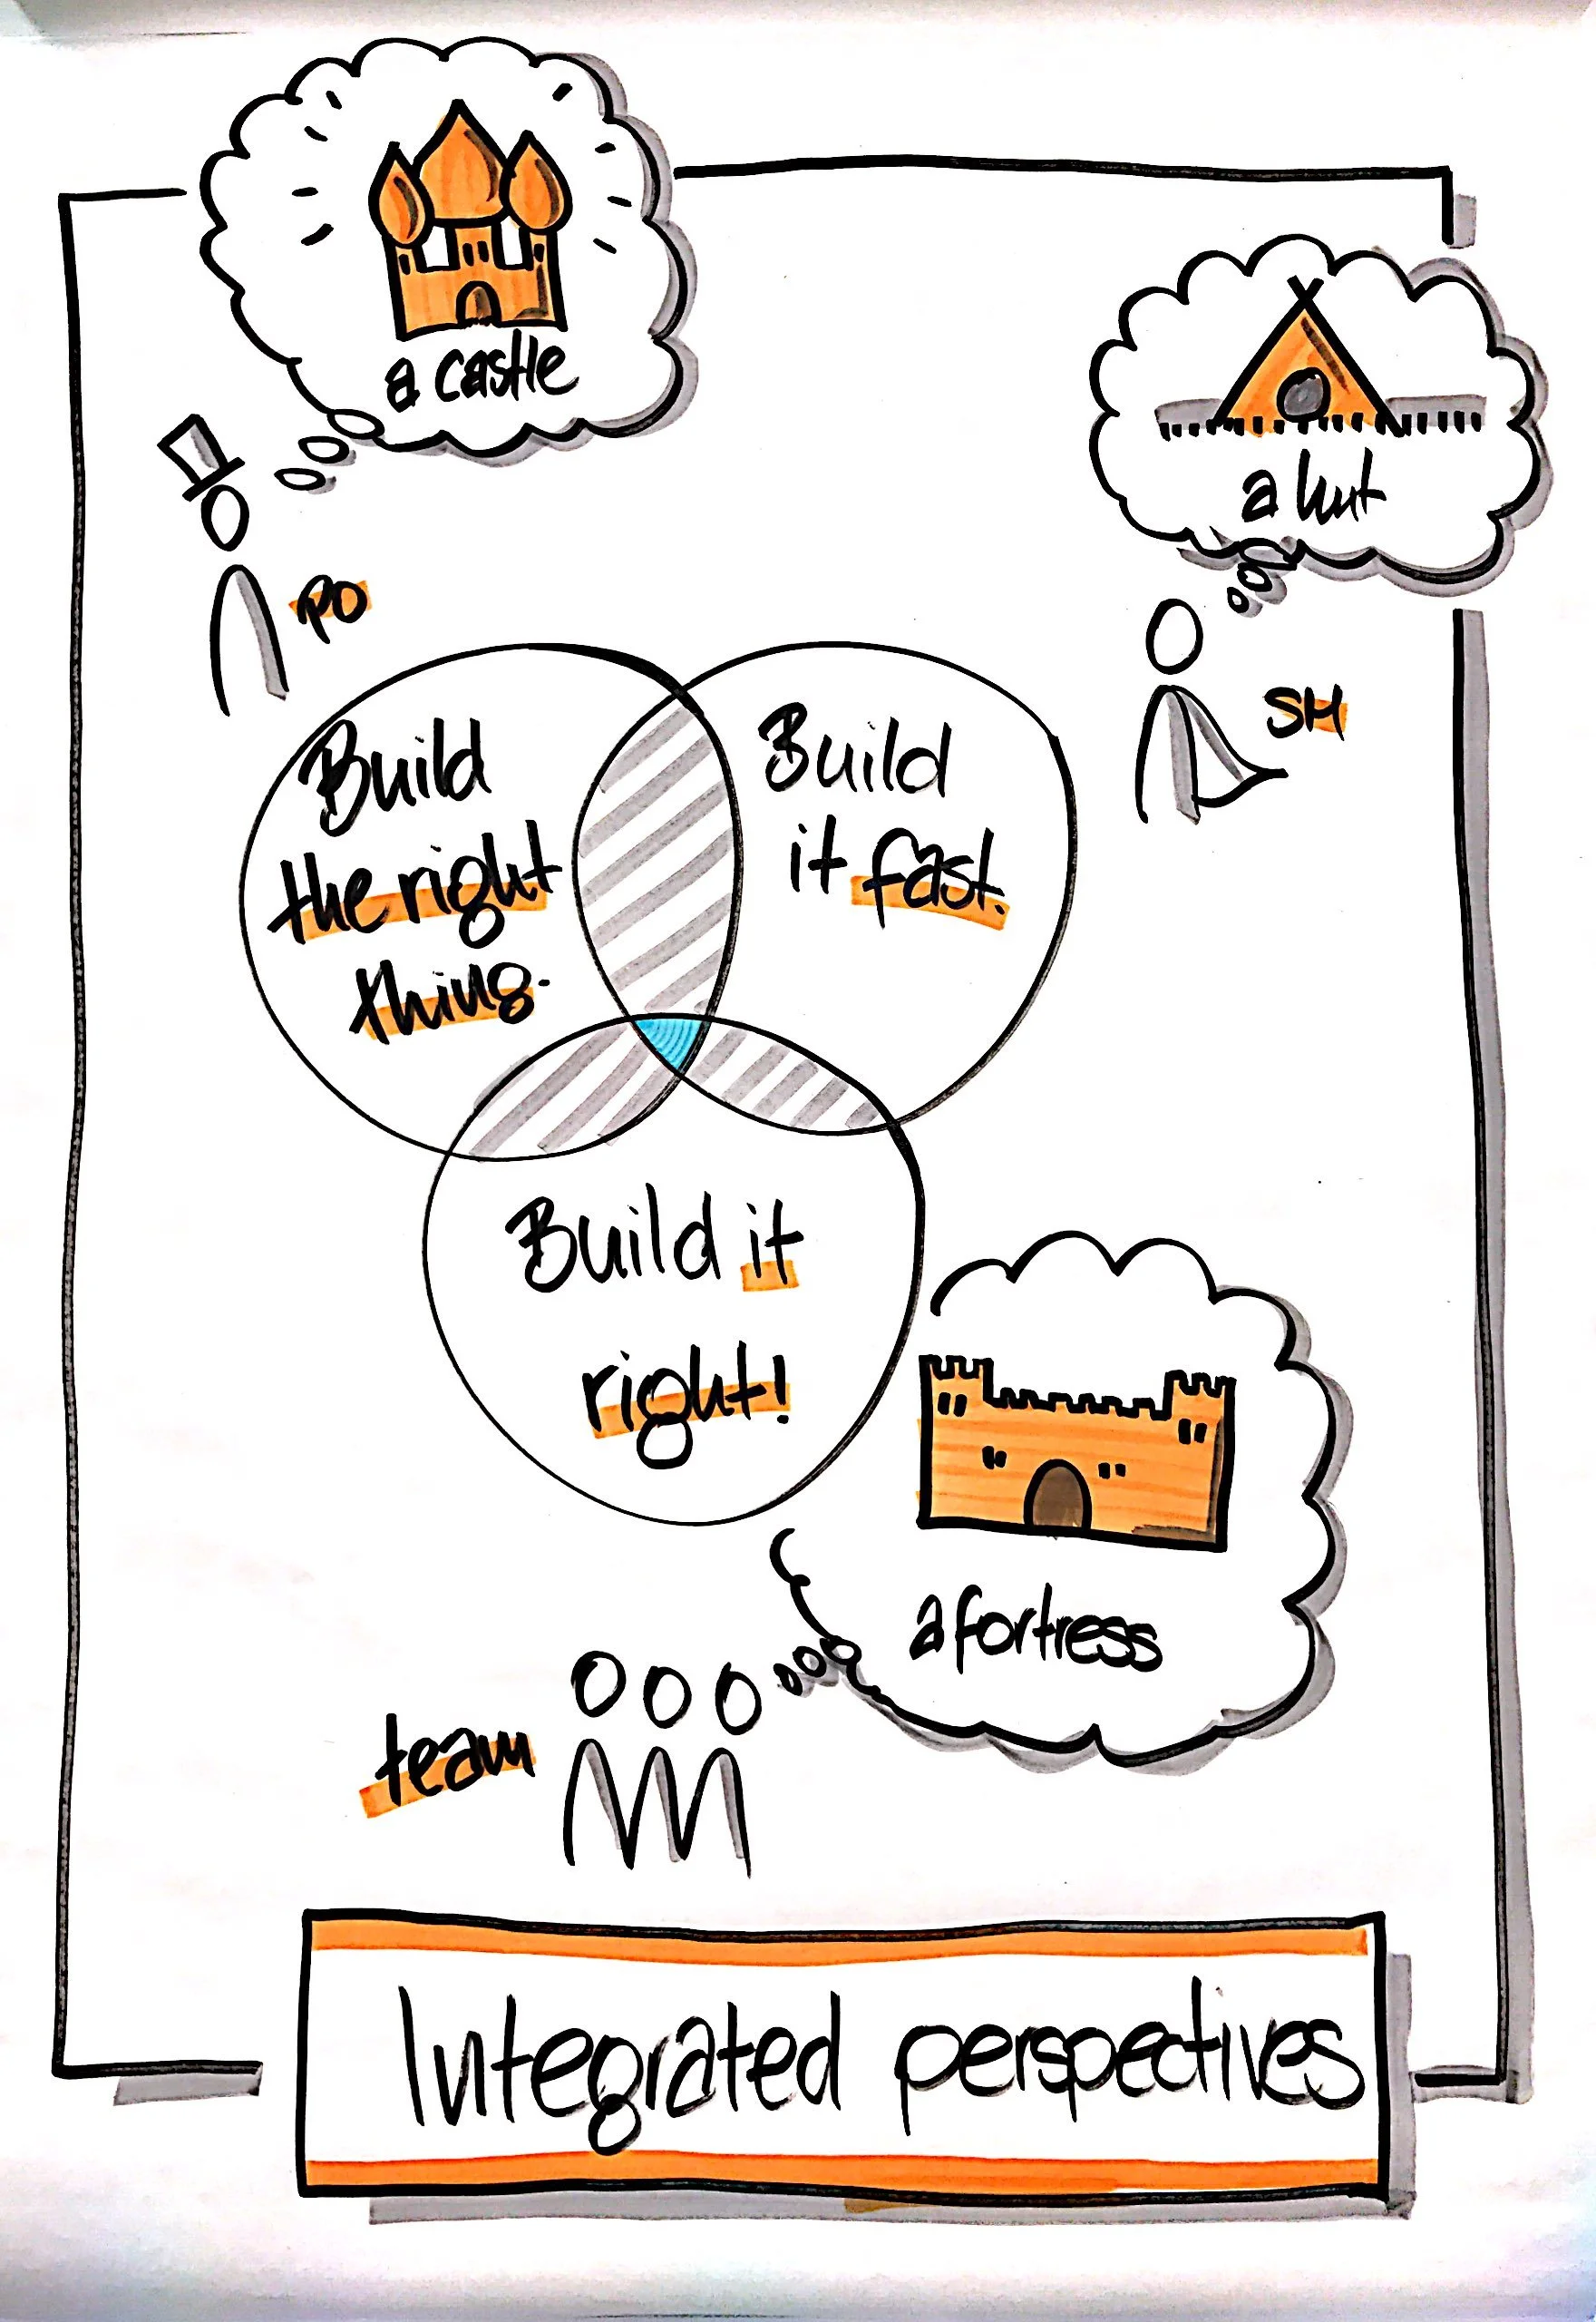 a castle
a hut
PO
SM
Build
the right
thing.
Build
it fast.
Build it
right!
a fortress
team
Integrated perspectives